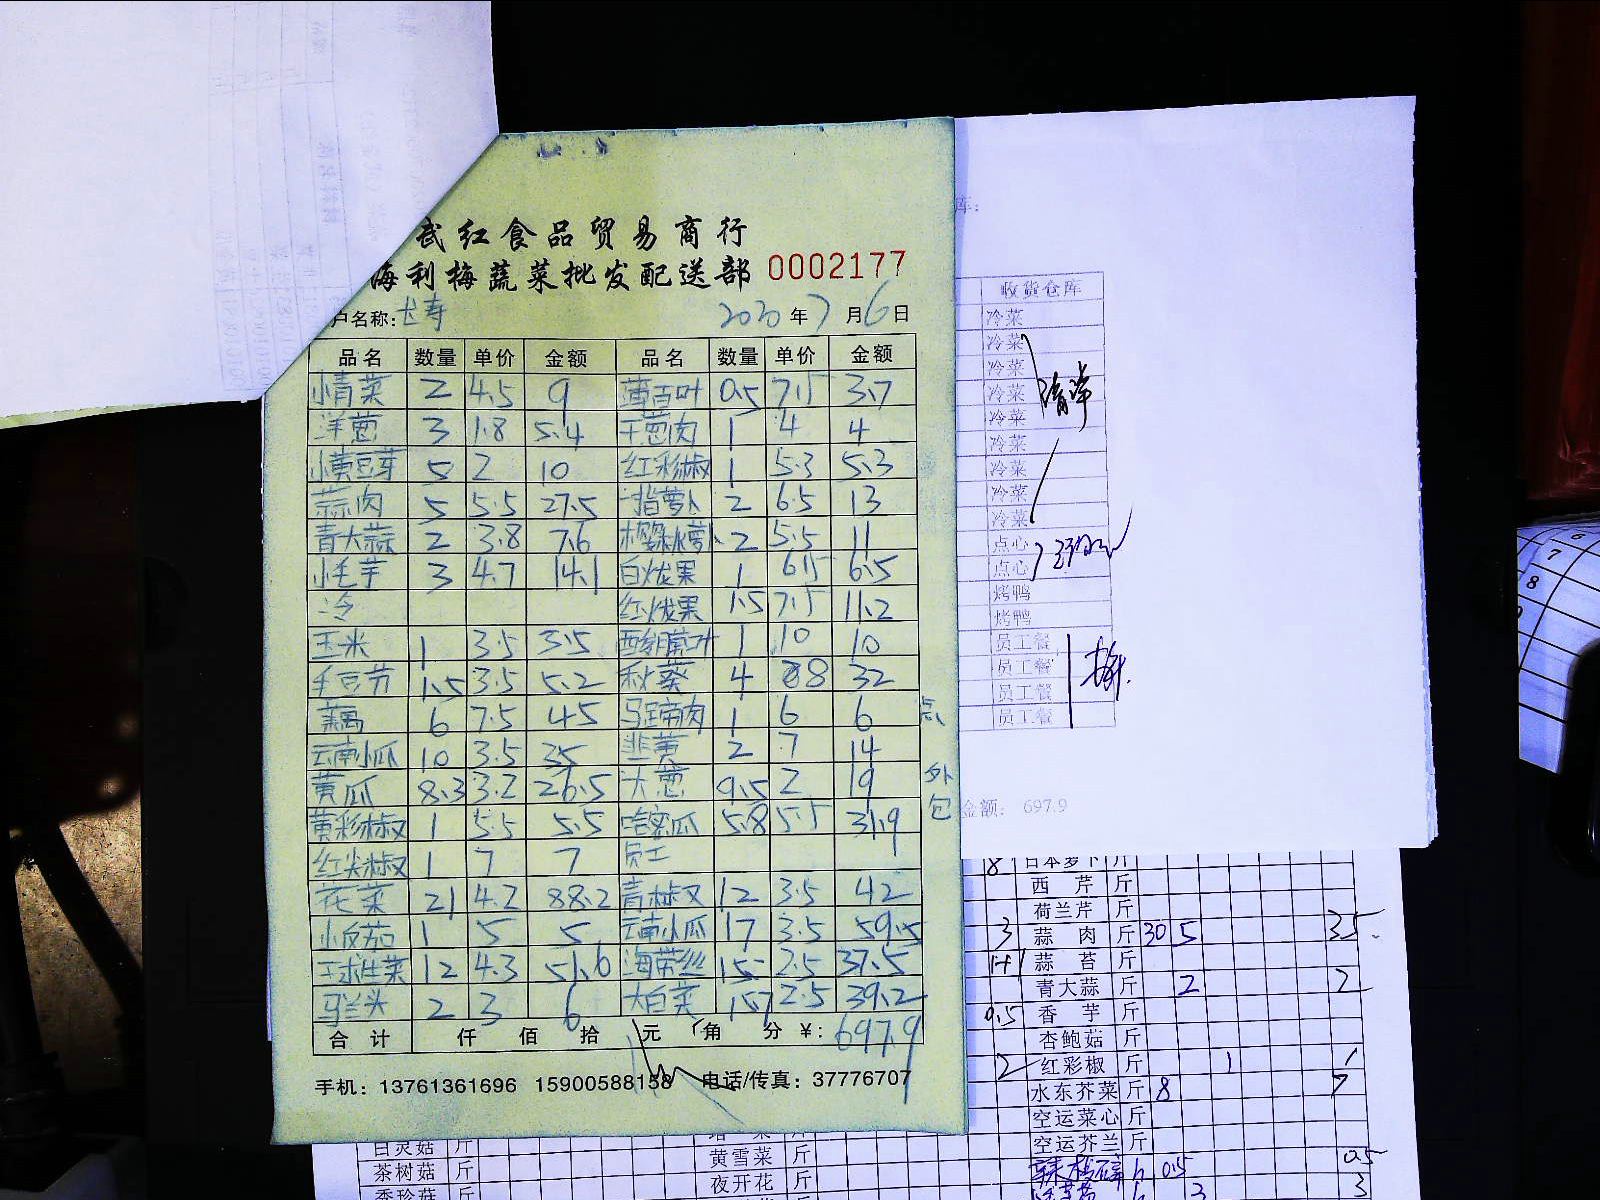 武红食品贸易商行
海利梅蔬菜批发配送部 0002177
户名称: 2020年7月6日
品名 数量 单价 金额 品名 数量 单价 金额
小青菜 2 4.5 9 薄百叶 0.5 7.5 3.7
洋葱 3 1.8 5.4 干葱肉 1 4 4
小黄豆芽 5 2 10 红彩椒 1 5.3 5.3
蒜肉 5 5.5 27.5 指萝卜 2 6.5 13
青大蒜 2 3.8 7.6 樱桃萝卜 2 5.5 11
小毛芋 3 4.7 14.1 白火龙果 1 6.5 6.5
冷 红火龙果 1.5 7.5 11.2
玉米 1 3.5 3.5 1 10 10
毛豆节 1.5 3.5 5.2 秋葵 4 8 32
藕 6 7.5 45 马蹄肉 1 6 6 点
云南小瓜 10 3.5 35 韭黄 2 7 14
黄瓜 8.3 3.2 26.5 大葱 9.5 2 19 外
黄彩椒 1 5.5 5.5 哈密瓜 5.8 5.5 31.9 包
红尖椒 1 7 7 员工
花菜 21 4.2 88.2 青椒 12 3.5 42
小番茄 1 5 5 云南小瓜 17 3.5 59.5
玉球生菜 12 4.3 51.6 海带丝 15 2.5 37.5
马兰头 2 3 6 大白菜 15.7 2.5 39.2
合计 仟 佰 拾 元 角 分 ¥: 697.9
手机: 13761361696 15900588158 电话/传真: 37776707
库:
收货仓库
冷菜
冷菜
冷菜
冷菜
冷菜
冷菜
冷菜
冷菜
冷菜
点心
点心
烤鸭
烤鸭
员工餐
员工餐
员工餐
员工餐
金额: 697.9
8 日本萝卜 斤
西芹 斤
荷兰芹 斤
3 蒜肉 斤 30 5 35
蒜苔 斤
青大蒜 斤 2 2
0.5 香芋 斤
杏鲍菇 斤
2 红彩椒 斤 1 1
水东芥菜 斤 8 7
空运菜心 斤
空运芥兰 斤
0.5 0.5
3 3
白灵菇 斤
茶树菇 斤
秀珍菇 斤
黄雪菜 斤
夜开花 斤
6
7
8
9